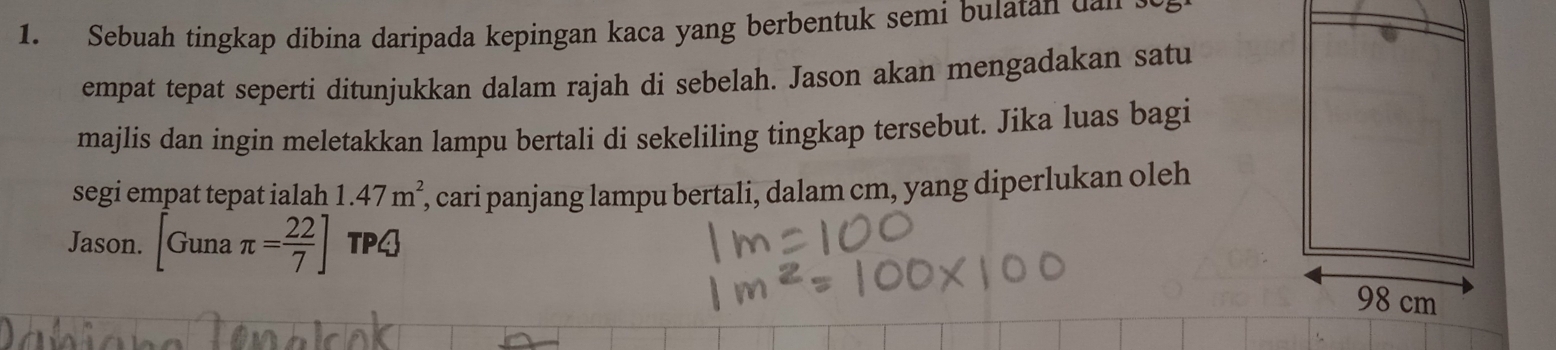 1. Sebuah tingkap dibina daripada kepingan kaca yang berbentuk semi bulatan dan segi
empat tepat seperti ditunjukkan dalam rajah di sebelah. Jason akan mengadakan satu
majlis dan ingin meletakkan lampu bertali di sekeliling tingkap tersebut. Jika luas bagi
segi empat tepat ialah 1.47 m², cari panjang lampu bertali, dalam cm, yang diperlukan oleh
Jason. [Guna π = 22/7] TP4
1m = 100
1m² = 100 × 100
98 cm